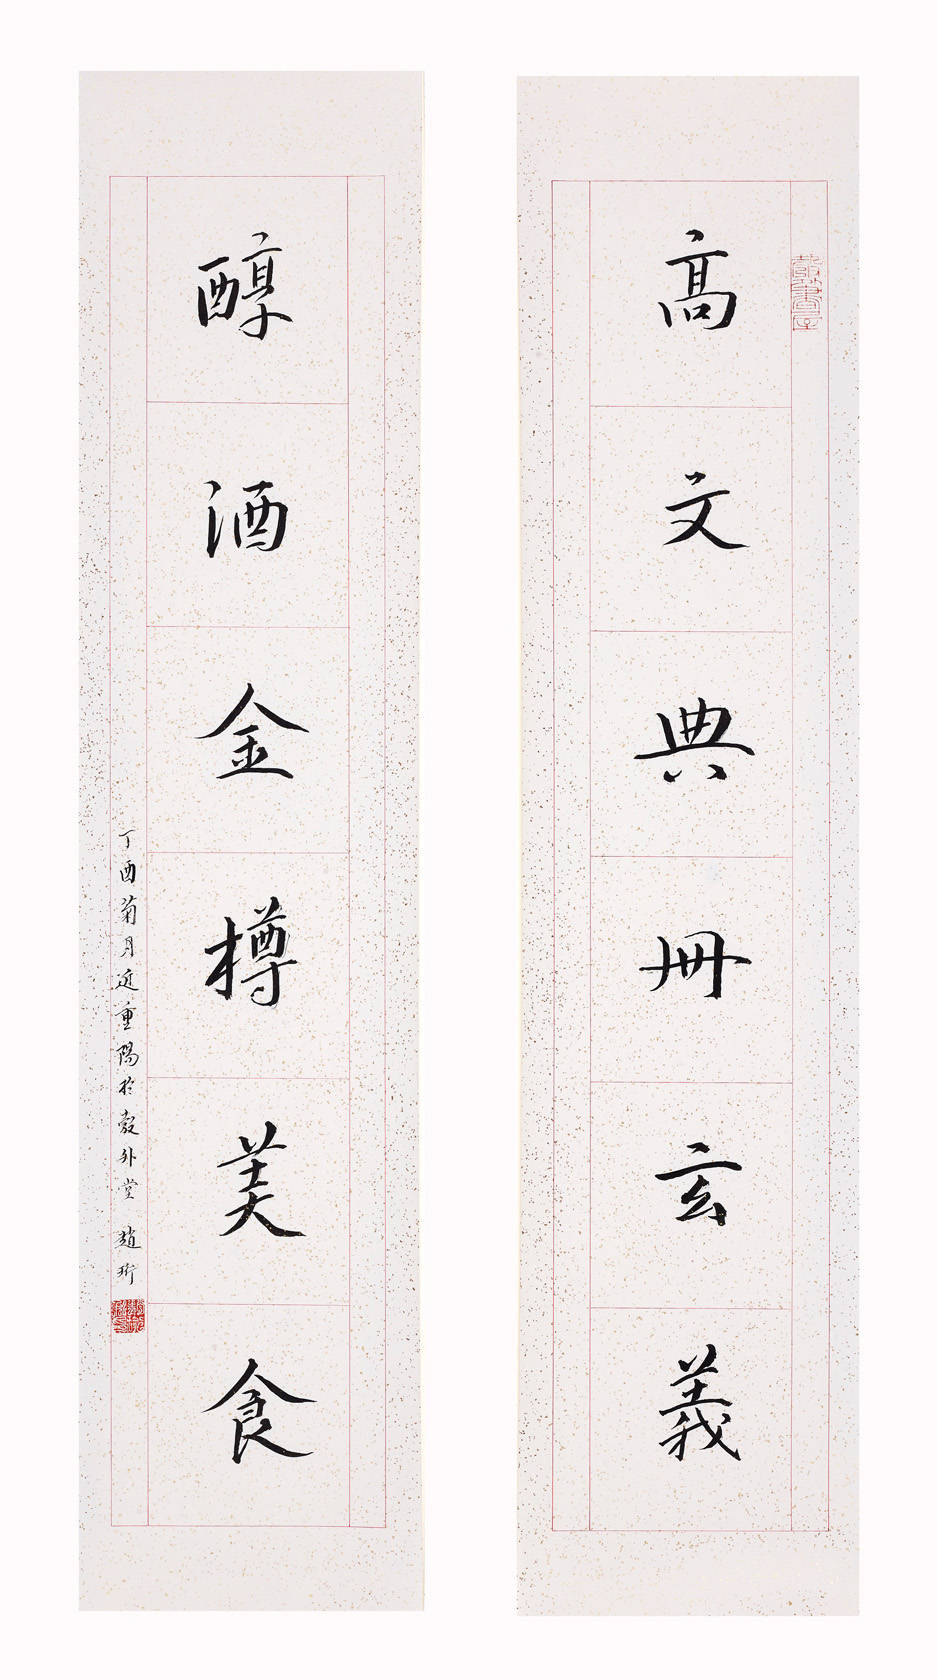 高文典冊玄義
醇酒金樽美食
丁酉菊月近重陽於彀外堂 趙珩